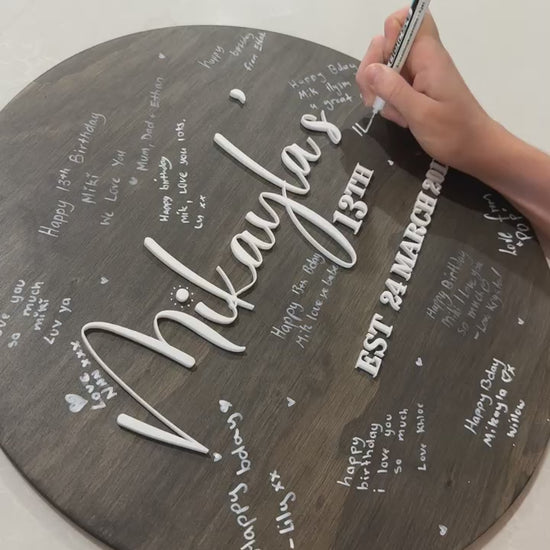 Mikayla's
13TH
EST 24 MARCH 201
happy birthday
from Ethan
Happy Bday
Mik
u great
Happy 13th Birthday
Miki
we Love You
Mum, Dad + Ethan
Happy birthday
mik, Love you lots,
Ly xx
you
so much
miki
Luv ya
Love
xxx
Happy 13th Bday
Mik love ya
Love from
Happy Birthday
Mik I love you
so much
Happy Bday
Mikayla
Willow
happy
birthday
i love you
so much
Love Khloe
Happy bday
-Lily xx